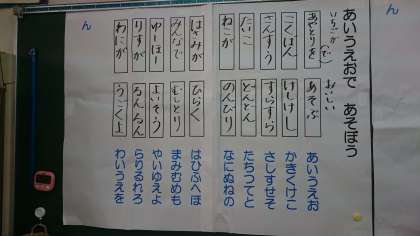 ん
あいうえおで あそぼう
いちごが（で） おいしい
あやとりを あそぶ あいうえお
こくばん けしけし かきくけこ
さんすう すらすら さしすせそ
たいこ どんどん たちつてと
ねこが のんびり なにぬねの
はさみが ひらく はひふへほ
みんなで むしとり まみむめも
ゆーほー よいそう やいゆえよ
りすが るんるん らりるれろ
わにが うごくよ わいうえを
ん